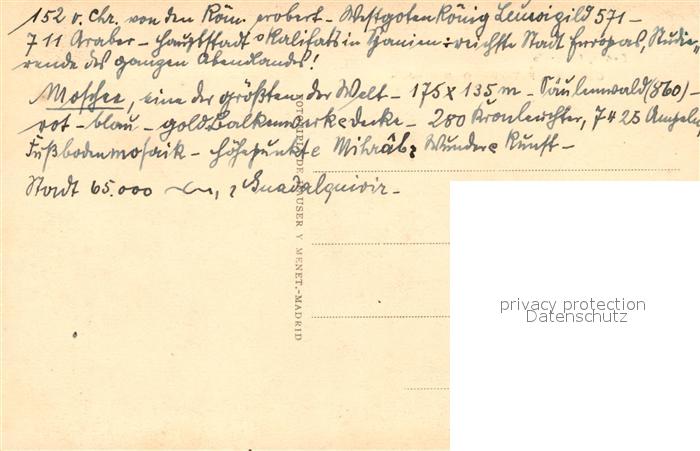 152 v. Chr. von den Röm. erobert – Westgotenkönig Leuwigild 571 –
711 Araber – Hauptstadt d Kalifats in Spanien : reichste Stadt Europas, Studie-
rende des ganzen Abendlandes!
Moschee, eine der größten der Welt – 175 x 135 m – Säulenwald (860) –
rot – blau – gold Balkenwerkdecke – 280 Kronleuchter, 7425 Ampeln,
Fußbodenmosaik – Höhepunkte Mihrâb: Wunder Kunft –
Stadt 65.000 Guadalquivir –
FOTOTIPIA DE HAUSER Y MENET.-MADRID
privacy protection
Datenschutz